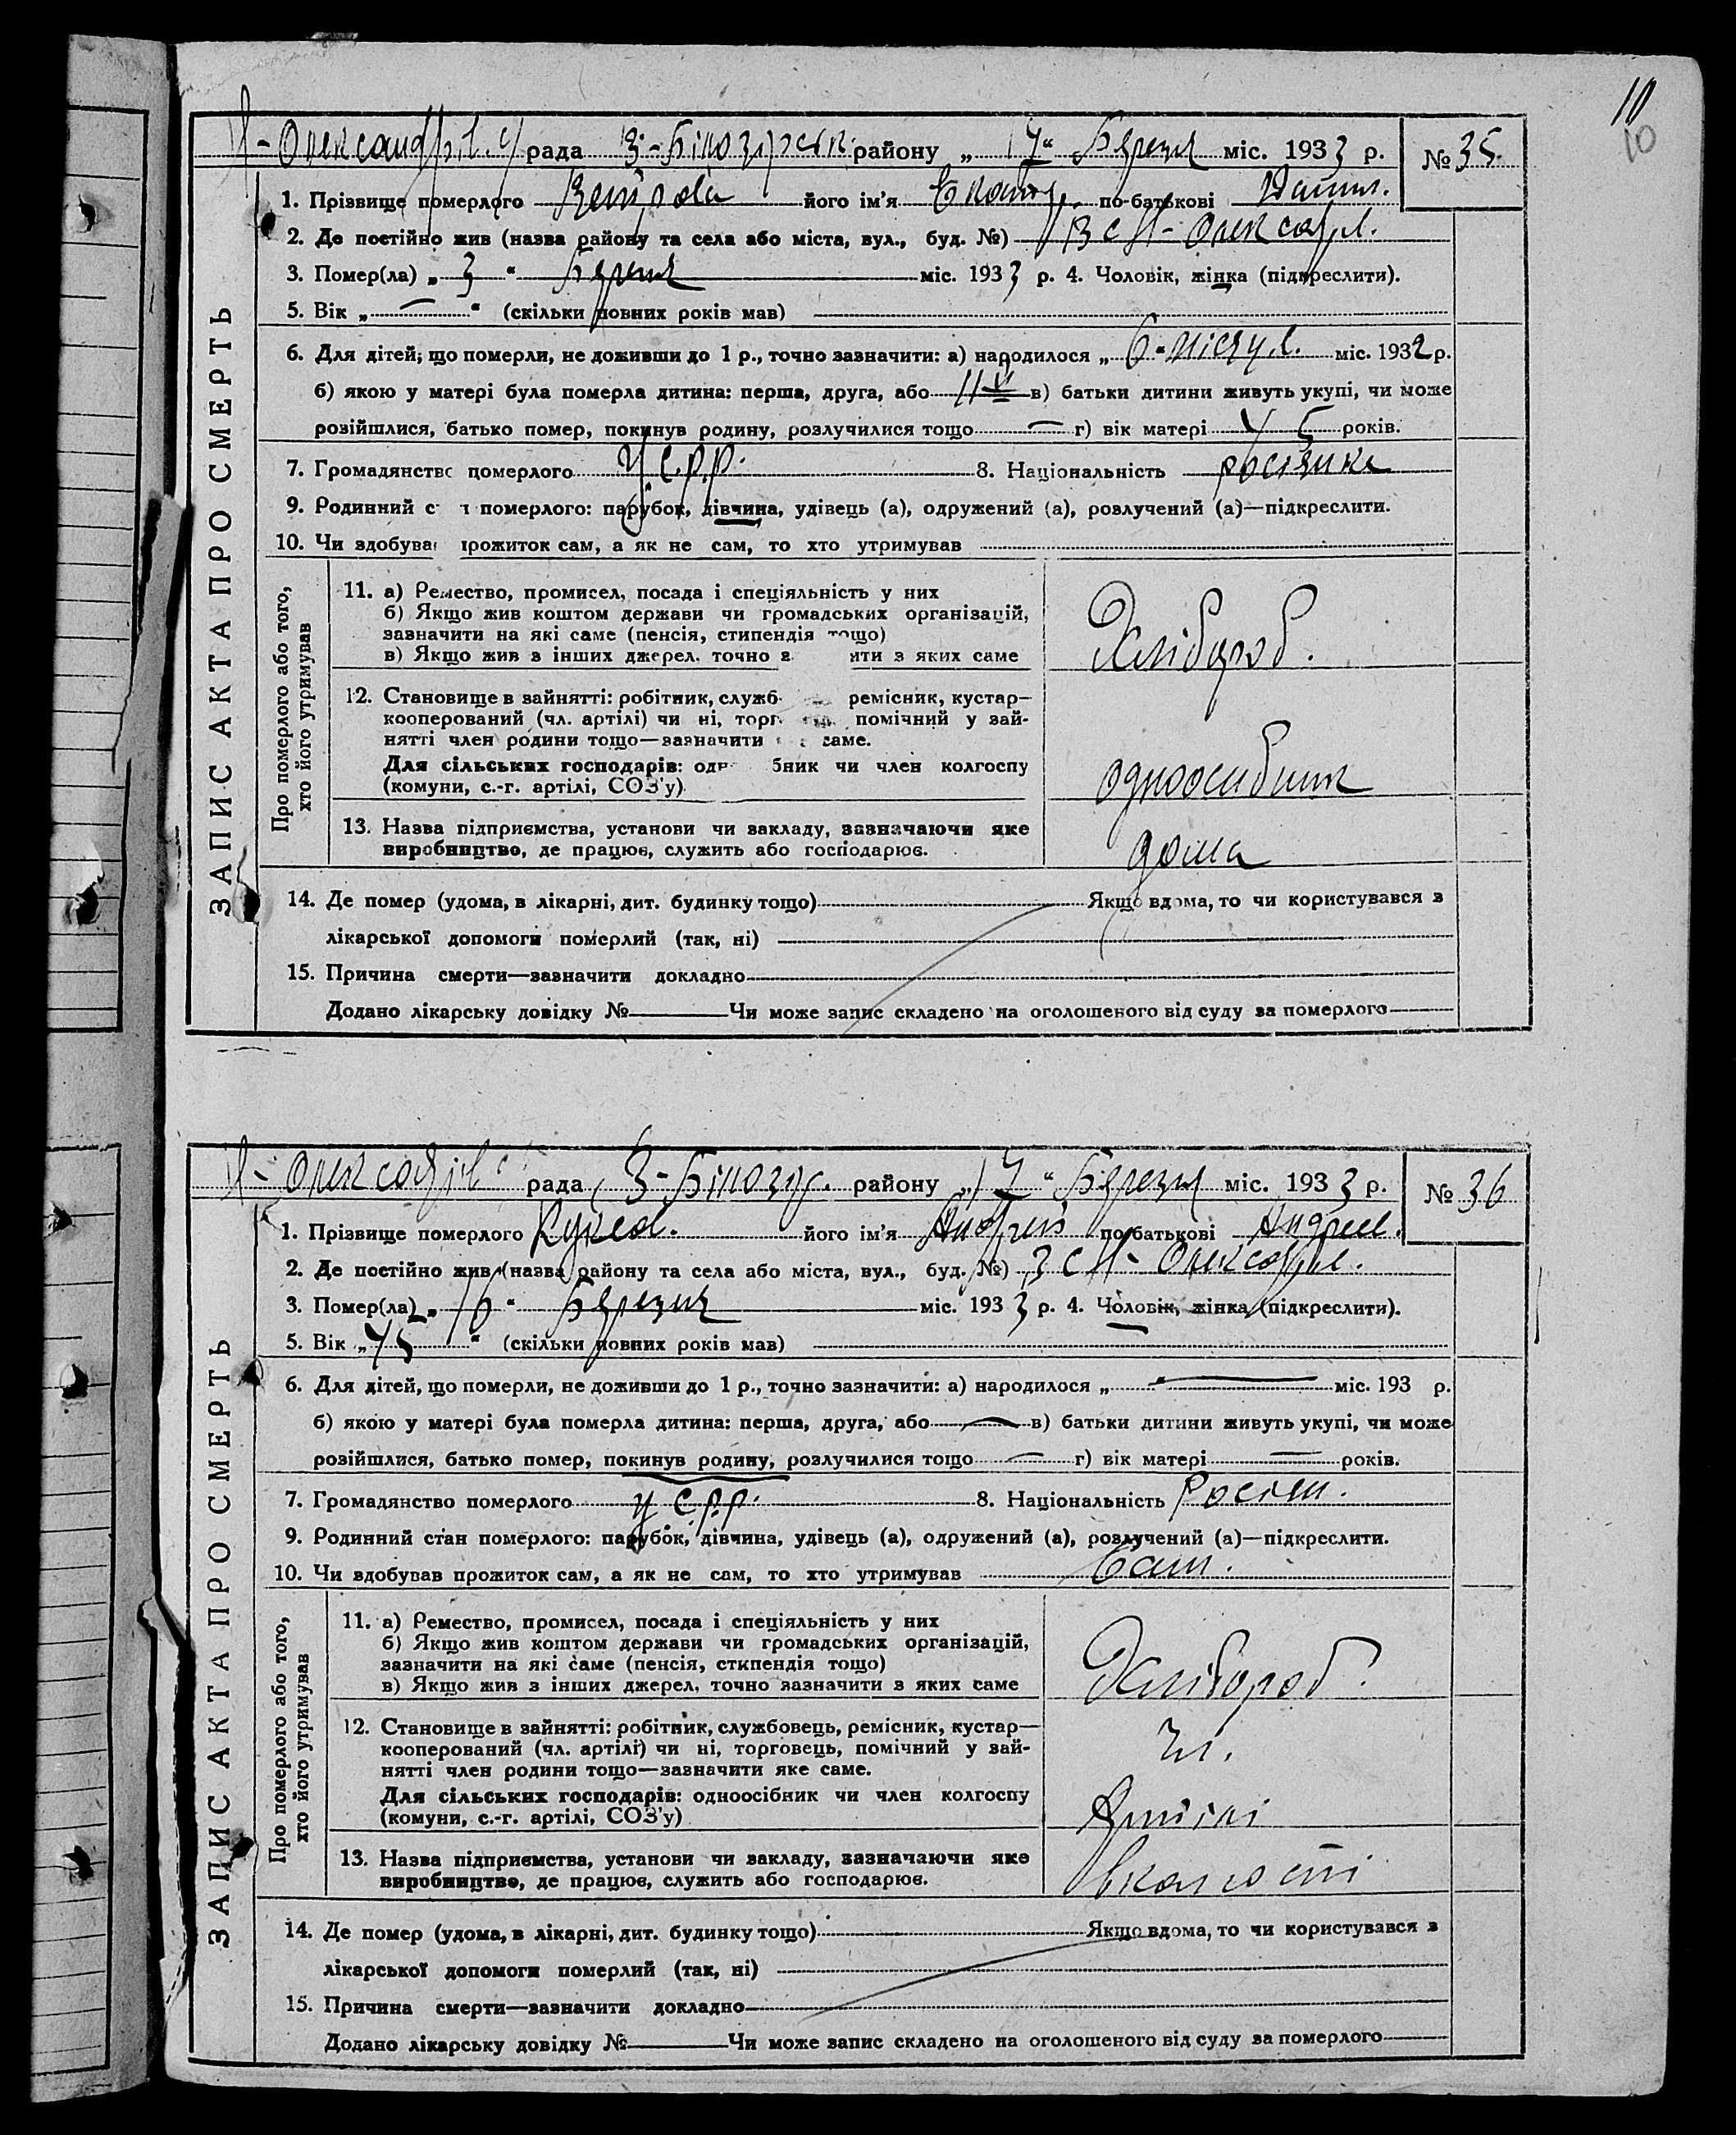 10
10
Н-Олександрівс рада В-Білозірськ району „17“ Березня міс. 1933 р. № 35.
1. Прізвище померлого його ім'я Екатер. по-батькові Данил.
2. Де постійно жив (назва району та села або міста, вул., буд. №) В с Н-Олександрів.
3. Помер(ла) „3“ Березня міс. 1933 р. 4. Чоловік, жінка (підкреслити).
5. Вік „—“ (скільки повних років мав)
6. Для дітей, що померли, не доживши до 1 р., точно зазначити: а) народилося „6“ міс. 1932 р.
б) якою у матері була померла дитина: перша, друга, або в) батьки дитини живуть укупі, чи може
розійшлися, батько помер, покинув родину, розлучилися тощо — г) вік матері 45 років.
7. Громадянство померлого У.С.Р.Р. 8. Національність росіянка
9. Родинний с н померлого: парубок, дівчина, удівець (а), одружений (а), розлучений (а)—підкреслити.
10. Чи здобував прожиток сам, а як не сам, то хто утримував
ЗАПИС АКТА ПРО СМЕРТЬ
Про померлого або того,
хто його утримував
11. а) Ремество, промисел, посада і спеціяльність у них
б) Якщо жив коштом держави чи громадських організацій,
зазначити на які саме (пенсія, стипендія тощо)
в) Якщо жив з інших джерел, точно з ити з яких саме
Хлібороб.
12. Становище в зайнятті: робітник, служб ремісник, кустар—
кооперований (чл. артілі) чи ні, торг помічний у зай-
нятті член родини тощо—зазначити саме.
Для сільських господарів: одн бник чи член колгоспу
(комуни, с.-г. артілі, СОЗ'у)
одноосибник
13. Назва підприємства, установи чи закладу, зазначаючи яке
виробництво, де працює, служить або господарює.
дома
14. Де помер (удома, в лікарні, дит. будинку тощо) Якщо вдома, то чи користувався з
лікарської допомоги померлий (так, ні)
15. Причина смерти—зазначити докладно
Додано лікарську довідку № Чи може запис складено на оголошеного від суду за померлого
Н-Олександрів рада В-Білозір. району „17“ Березня міс. 1933 р. № 36
1. Прізвище померлого його ім'я Андрей по-батькові Андреев.
2. Де постійно жив (назва району та села або міста, вул., буд. №) В с Н-Олександрів.
3. Помер(ла) „16“ Березня міс. 1933 р. 4. Чоловік, жінка (підкреслити).
5. Вік „45“ (скільки повних років мав)
6. Для дітей, що померли, не доживши до 1 р., точно зазначити: а) народилося „ “ — міс. 193 р.
б) якою у матері була померла дитина: перша, друга, або — в) батьки дитини живуть укупі, чи може
розійшлися, батько помер, покинув родину, розлучилися тощо — г) вік матері — років.
7. Громадянство померлого У С.Р.Р. 8. Національність Росіян.
9. Родинний стан померлого: парубок, дівчина, удівець (а), одружений (а), розлучений (а)—підкреслити.
10. Чи здобував прожиток сам, а як не сам, то хто утримував Сам.
ЗАПИС АКТА ПРО СМЕРТЬ
Про померлого або того,
хто його утримував
11. а) Ремество, промисел, посада і спеціяльність у них
б) Якщо жив коштом держави чи громадських організацій,
зазначити на які саме (пенсія, стипендія тощо)
в) Якщо жив з інших джерел, точно зазначити з яких саме
Хлібороб.
12. Становище в зайнятті: робітник, службовець, ремісник, кустар—
кооперований (чл. артілі) чи ні, торговець, помічний у зай-
нятті член родини тощо—зазначити яке саме.
Для сільських господарів: одноосібник чи член колгоспу
(комуни, с.-г. артілі, СОЗ'у)
Чл.
Артілі
13. Назва підприємства, установи чи закладу, зазначаючи яке
виробництво, де працює, служить або господарює.
14. Де помер (удома, в лікарні, дит. будинку тощо) Якщо вдома, то чи користувався з
лікарської допомоги померлий (так, ні)
15. Причина смерти—зазначити докладно
Додано лікарську довідку № Чи може запис складено на оголошеного від суду за померлого